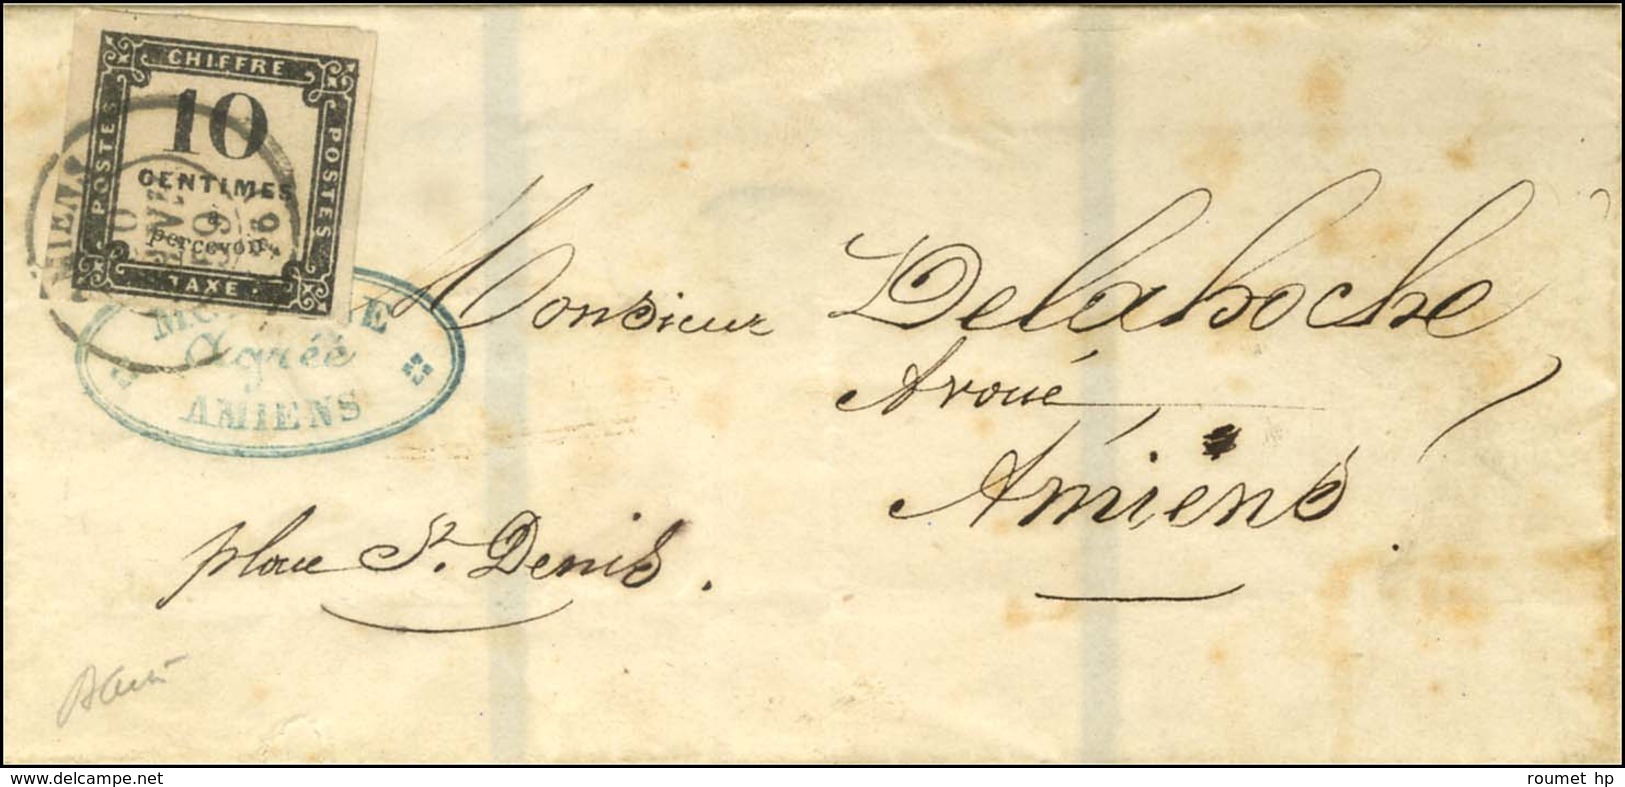 CHIFFRE
POSTES
10
CENTIMES
à
percevoir
POSTES
TAXE
Agréé
AMIENS
Monsieur Delahoche
Avoué,
Amiens.
place St. Denis.
www.delcampe.net
roumet hp